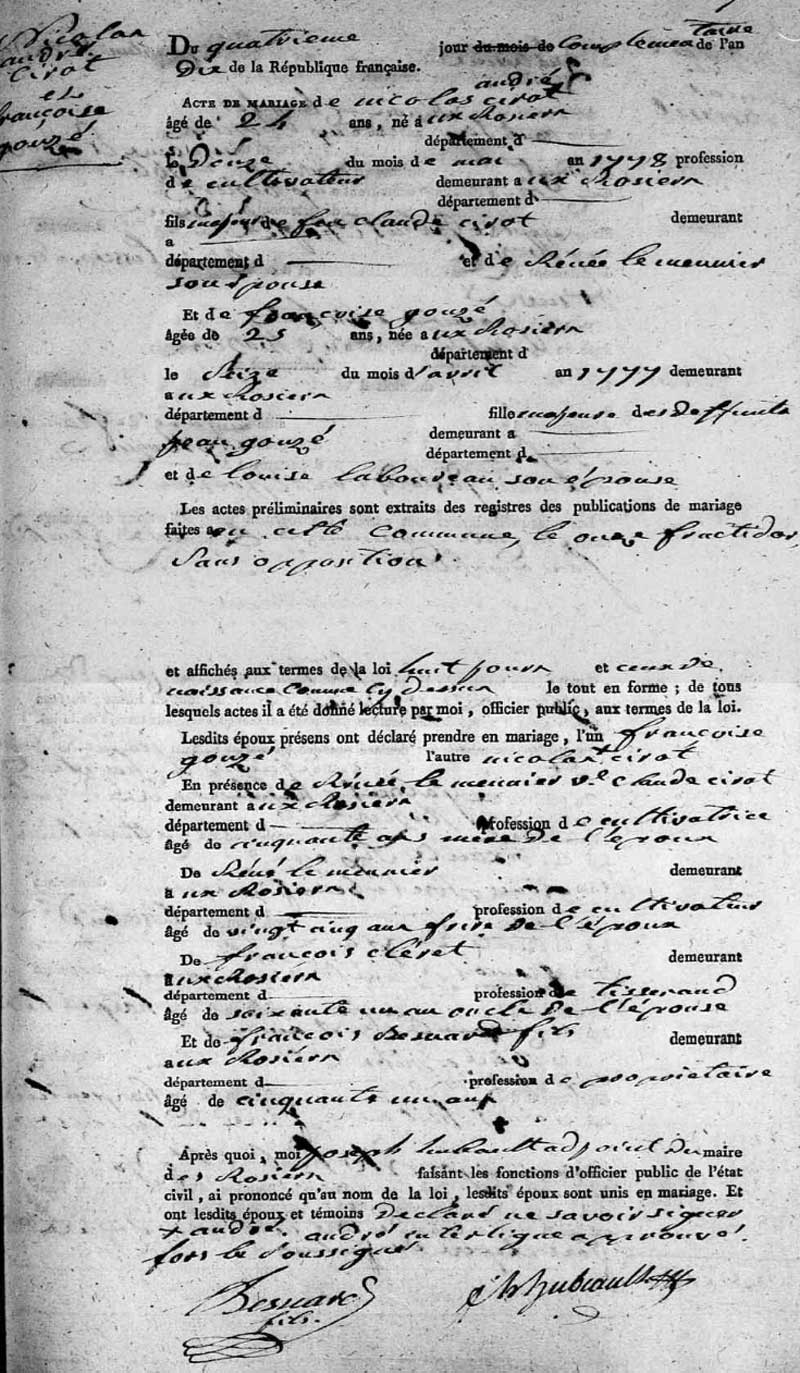 Nicolas
andré
Cirot
et
françoise
gouzé
Du quatrieme jour du mois de complémentaire de l'an
Dix de la République française.
andré
ACTE DE MARIAGE de nicolas cirot
âgé de 24 ans, né a ux Rosiers
département d
le Douze du mois de mai an 1778 profession
de cultivateur demeurant a ux Rosiers
département d
fils majeur de feu claude cirot demeurant
a
département d et de Rénée le meunier
son épouse
Et de françoise gouzé
âgée de 25 ans, née a ux Rosiers
département d
le Seize du mois d'avril an 1777 demeurant
a ux Rosiers
département d fille majeure des deffunts
jean gouzé demeurant a
département d
et de louise laboureau son épouse
Les actes préliminaires sont extraits des registres des publications de mariage
faites a en cette Commune, le onze fructidor,
Sans opposition.
et affichés aux termes de la loi huit jours et ceux de
naissance comme cy dessus le tout en forme ; de tous
lesquels actes il a été donné lecture par moi, officier public, aux termes de la loi.
Lesdits époux présens ont déclaré prendre en mariage, l'un françoise
gouzé l'autre nicolas + cirot
En présence de Rénée le meunier ve claude cirot
demeurant a ux Rosiers
département d profession de cultivatrice
âgé de cinquante ans mère de l'époux
De Réné le meunier demeurant
a ux Rosiers
département d profession de cultivateur
âgé de vingt cinq ans frère de l'époux
De françois cléret demeurant
a ux Rosiers
département d profession de tisserand
âgé de soixante un an oncle de l'épouse
Et de francois Besnard fils demeurant
a ux Rosiers
département d profession de propriétaire
âgé de cinquante un ans
Après quoi, moi joseph hubault adjoint du maire
des Rosiers faisant les fonctions d'officier public de l'état
civil, ai prononcé qu'au nom de la loi, lesdits époux sont unis en mariage. Et
ont lesdits époux et témoins déclaré ne savoir signer
+ andré. andré interligne approuvé.
fors le soussigné
Besnard
fils.